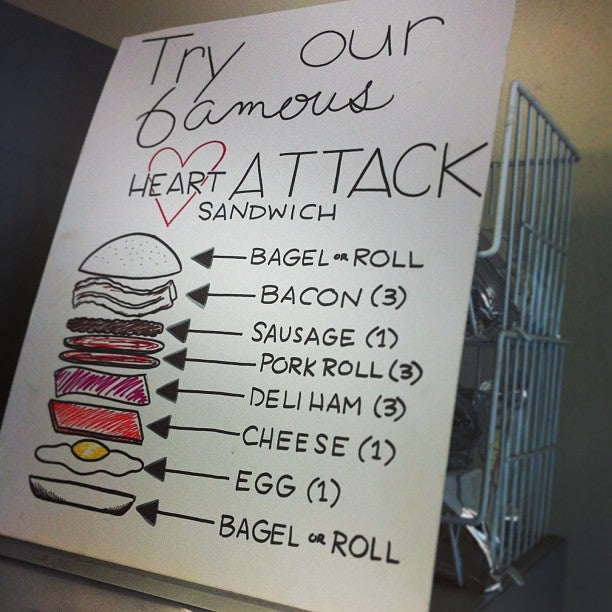 Try our
famous
HEART ATTACK
SANDWICH
BAGEL OR ROLL
BACON (3)
SAUSAGE (1)
PORK ROLL (3)
DELI HAM (3)
CHEESE (1)
EGG (1)
BAGEL OR ROLL